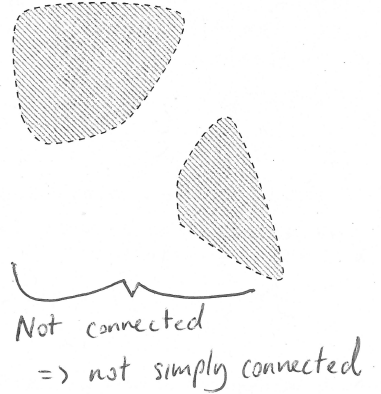 Not connected
=> not simply connected